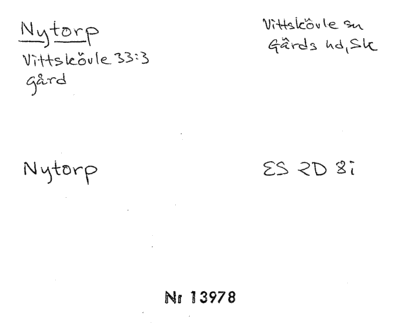 Nytorp
Vittskövle 33:3
gård
Vittskövle sn
Gärds hd, Sk
Nytorp
ES 2D 8i
Nr 13978